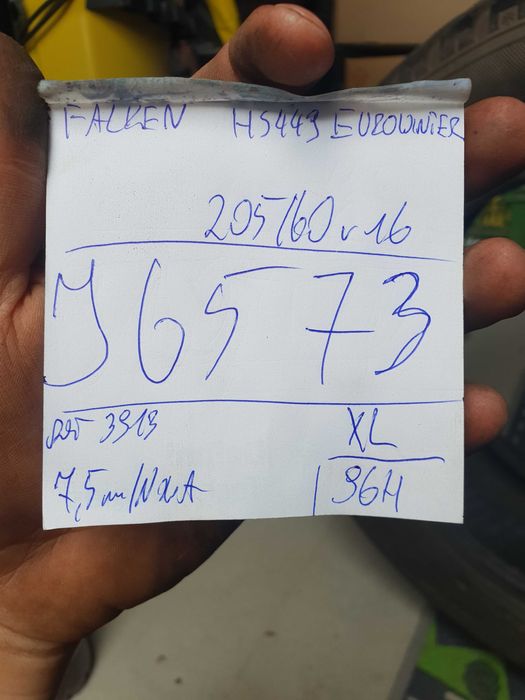 FALKEN HS449 EUROWINTER
205/60 r 16
J6573
DOT 3913
XL
96H